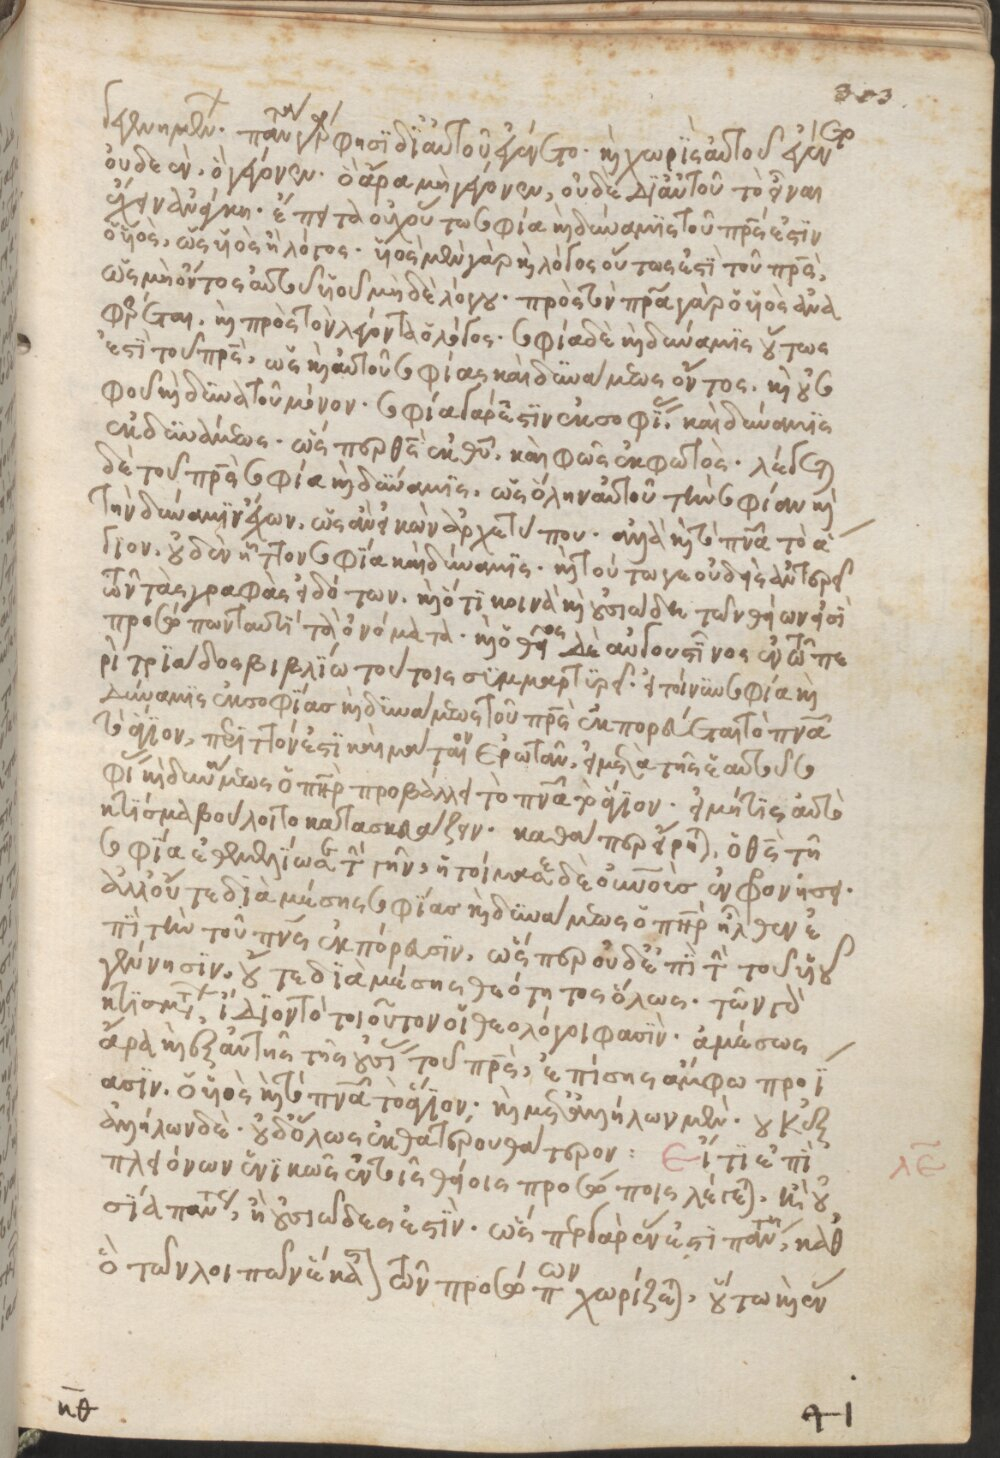 303
γεννητῶν. πάντα γάρ φησι δι' αὐτοῦ ἐγένετο. καὶ χωρὶς αὐτοῦ ἐγένετο
οὐδὲ ἕν, ὃ γέγονεν. ὃ ἄρα μὴ γέγονεν, οὐδὲ δι' αὐτοῦ τὸ εἶναι
ἔχειν ἀνάγκη. ἔπειτα οὐχ οὕτω σοφία καὶ δύναμις τοῦ πρς ἐστὶν
ὁ υἱός, ὡς υἱὸς καὶ λόγος. υἱὸς μὲν γὰρ καὶ λόγος οὕτως ἐστὶ τοῦ πρς,
ὡς μὴ ὄντος αὐτοῦ υἱοῦ μηδὲ λόγου. πρὸς τὸν πρα γὰρ ὁ υἱὸς ἀνα
φέρεται. καὶ πρὸς τὸν λέγοντα ὁ λόγος. σοφία δὲ καὶ δύναμις οὕτως
ἐστὶ τοῦ πρς, ὡς καὶ αὐτοῦ σοφίας καὶ δυνάμεως ὄντος. καὶ οὐ σο
φοῦ καὶ δυνατοῦ μόνον. σοφία γάρ ἐστιν ἐκ σοφίας καὶ δύναμις
ἐκ δυνάμεως. ὥσπερ θς ἐκ θυ, καὶ φῶς ἐκ φωτός. λέγεται
δὲ τοῦ πρς σοφία καὶ δύναμις, ὡς ὅλην αὐτοῦ τὴν σοφίαν καὶ
τὴν δύναμιν ἔχων, ὡς ἂν εἰκὼν ἀρχετύπου. ἀλλὰ καὶ τὸ πνα τὸ ἅ
γιον, οὐδὲν ἧττον σοφία καὶ δύναμις. καὶ τούτῳ γε οὐδεὶς ἀντερεῖ
τῶν τὰς γραφὰς εἰδότων. καὶ ὅτι κοινὰ καὶ οὐσιώδη τῶν θείων ἐστὶ
προσώπων ταυτὶ τὰ ὀνόματα. καὶ ὁ θεῖος δὲ αὐγουστῖνος ἐν τῷ πε
ρὶ τριάδος βιβλίῳ τούτοις συμμαρτυρεῖ. εἰ τοίνυν σοφία καὶ
δύναμις ἐκ σοφίας καὶ δυνάμεως τοῦ πρς ἐκπορεύεται τὸ πνα
τὸ ἅγιον, περιττόν ἐστι καὶ μάταιον ἐρωτᾶν, εἰ μετὰ τῆς ἑαυτοῦ σο
φίας καὶ δυνάμεως ὁ πηρ προβάλλει τὸ πνα τὸ ἅγιον. εἰ μή τις αὐτὸ
κτίσμα βούλοιτο κατασκευάζειν. καθάπερ εἴρηται, ὁ θς τῇ
σοφίᾳ ἐθεμελίωσε τὴν γῆν, ἡτοίμασε δὲ οὐνοὺς ἐν φρονήσει.
ἀλλ' οὔτε διὰ μέσης σοφίας καὶ δυνάμεως ὁ πηρ ἦλθεν ἐ
πὶ τὴν τοῦ πνς ἐκπόρευσιν, ὥσπερ οὐδὲ ἐπὶ τὴν τοῦ υἱοῦ
γέννησιν, οὔτε διὰ μέσης θεότητος ὅλως. τῶν γὰρ
κτισμάτων ἴδιον τὸ τοιοῦτον οἱ θεολόγοι φασίν. ἀμέσως
ἄρα καὶ ἐξ αὐτῆς τῆς οὐσίας τοῦ πρς, ἐπίσης ἄμφω προΐ
ασιν, ὁ υἱὸς καὶ τὸ πνα τὸ ἅγιον. καὶ μετ' ἀλλήλων μὲν. οὐκ ἐξ
ἀλλήλων δὲ. οὐδ' ὅλως ἐκ θατέρου θάτερον: Εἴ τι ἐπὶ
πλειόνων ἑνικῶς ἐν τοῖς θείοις προσώποις λέγεται, καὶ οὐ
σία πάντως, ἢ οὐσιῶδες ἐστὶν. ὥσπερ γὰρ ἕν ἐστι πάντη, καθ'
ὃ τῶν λοιπῶν ἕκαστον τῶν προσώπων χωρίζεται, οὕτω καὶ ἓν
λε
κθ